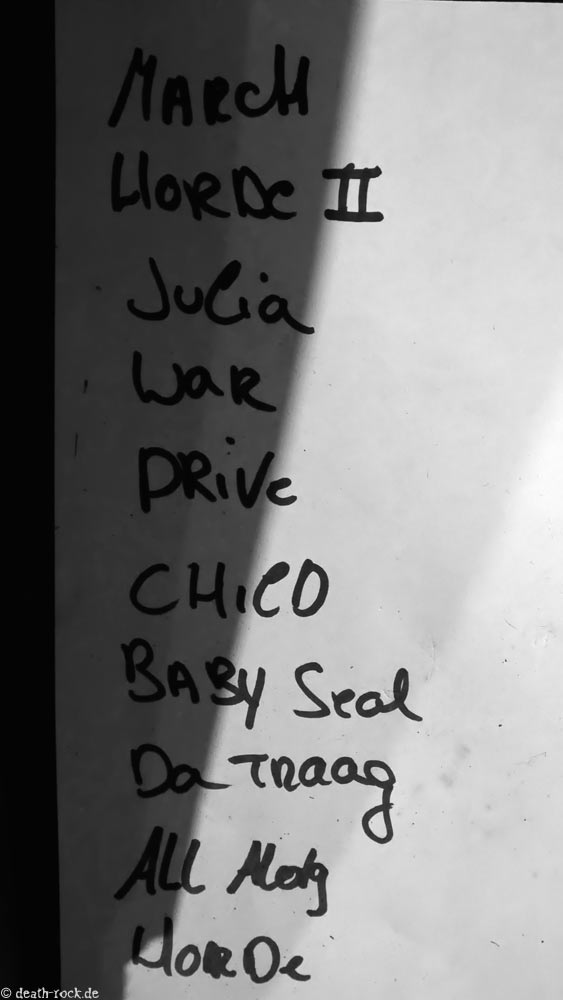 MARCH
HORDe II
Julia
WaR
DRiVe
CHilD
BABY Seal
Da Traag
ALL Along
HORDe
© death-rock.de